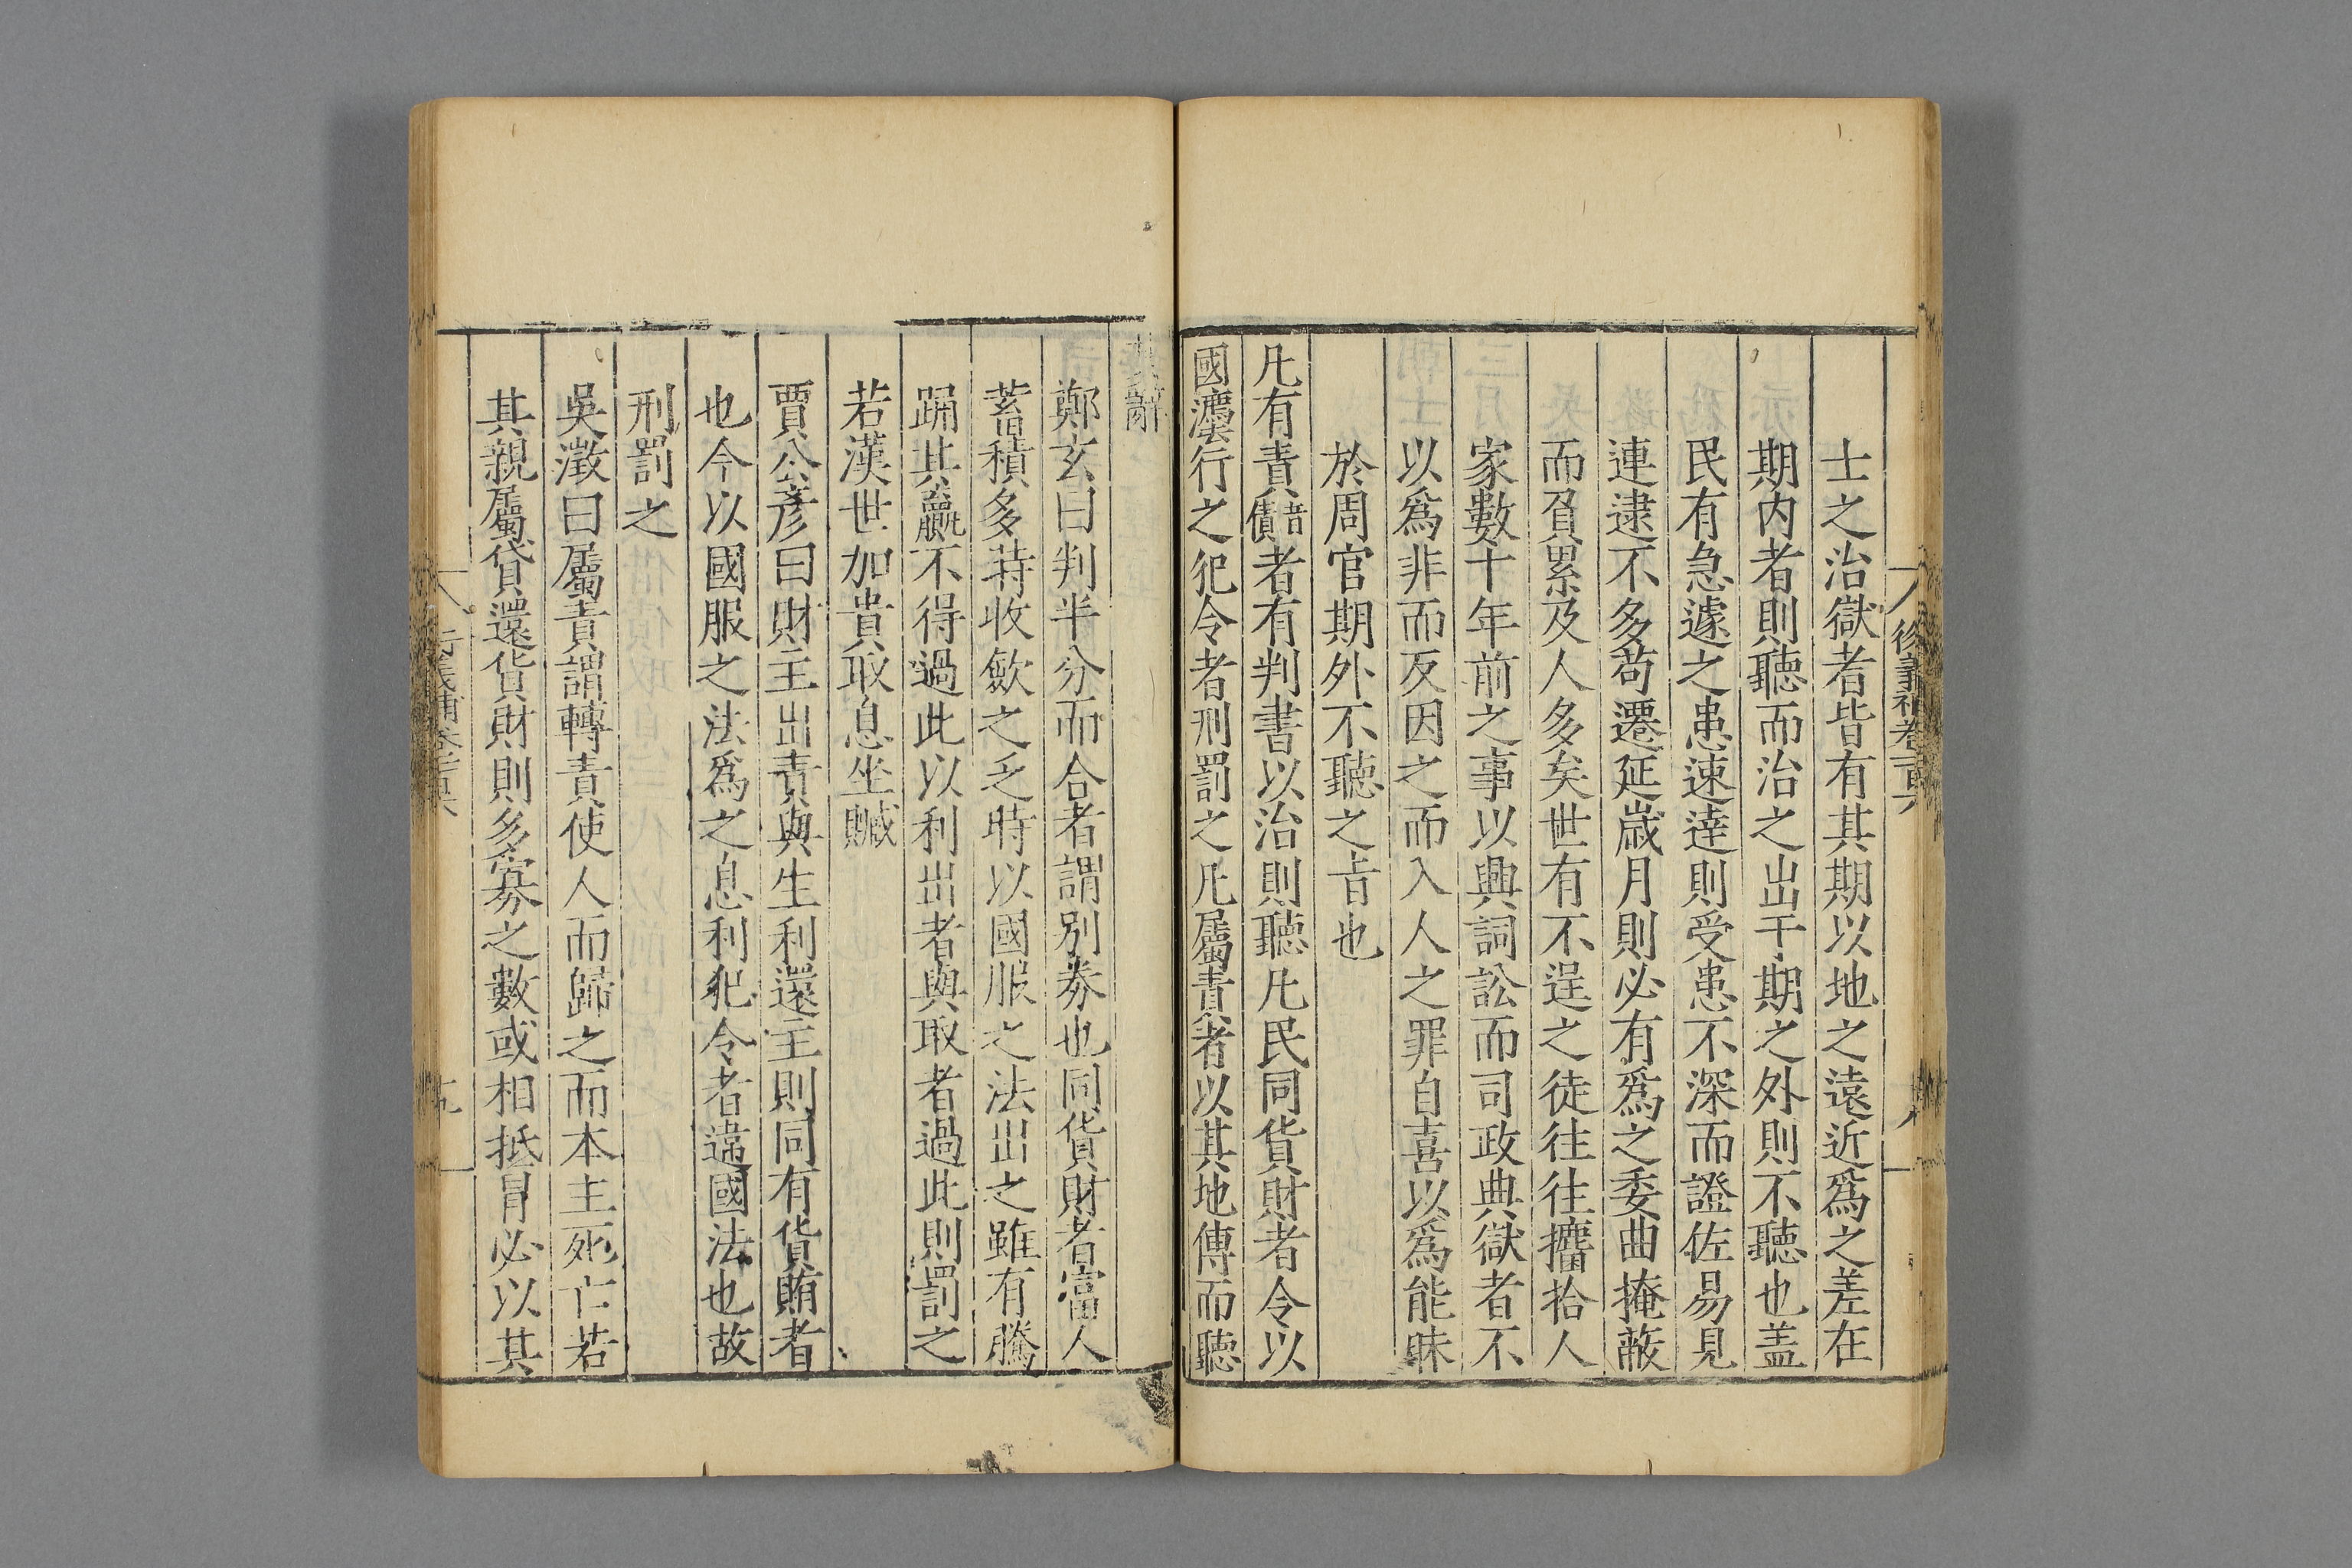 士之治獄者皆有其期以地之遠近爲之差在
期内者則聽而治之出于期之外則不聽也盖
民有急遽之患速達則受患不深而證佐易見
連逮不多苟遷延歲月則必有爲之委曲掩蔽
而負累及人多矣世有不逞之徒往往攟拾人
家數十年前之事以興詞訟而司政典獄者不
以爲非而反因之而入人之罪自喜以爲能昧
於周官期外不聽之旨也
凡有責音債者有判書以治則聽凡民同貨財者令以
國灋行之犯令者刑罰之凡屬責者以其地傅而聽
其辭
鄭玄曰判半分而合者謂别劵也同貨財者富人
蓄積多時收歛之乏時以國服之法出之雖有騰
踊其贏不得過此以利出者與取者過此則罰之
若漢世加貴取息坐贓
賈公彦曰財主出責與生利還主則同有貨賄者
也今以國服之法爲之息利犯令者違國法也故
刑罰之
吳澂曰屬責謂轉責使人而歸之而本主死亡若
其親屬貸還貨財則多寡之數或相抵冒必以其